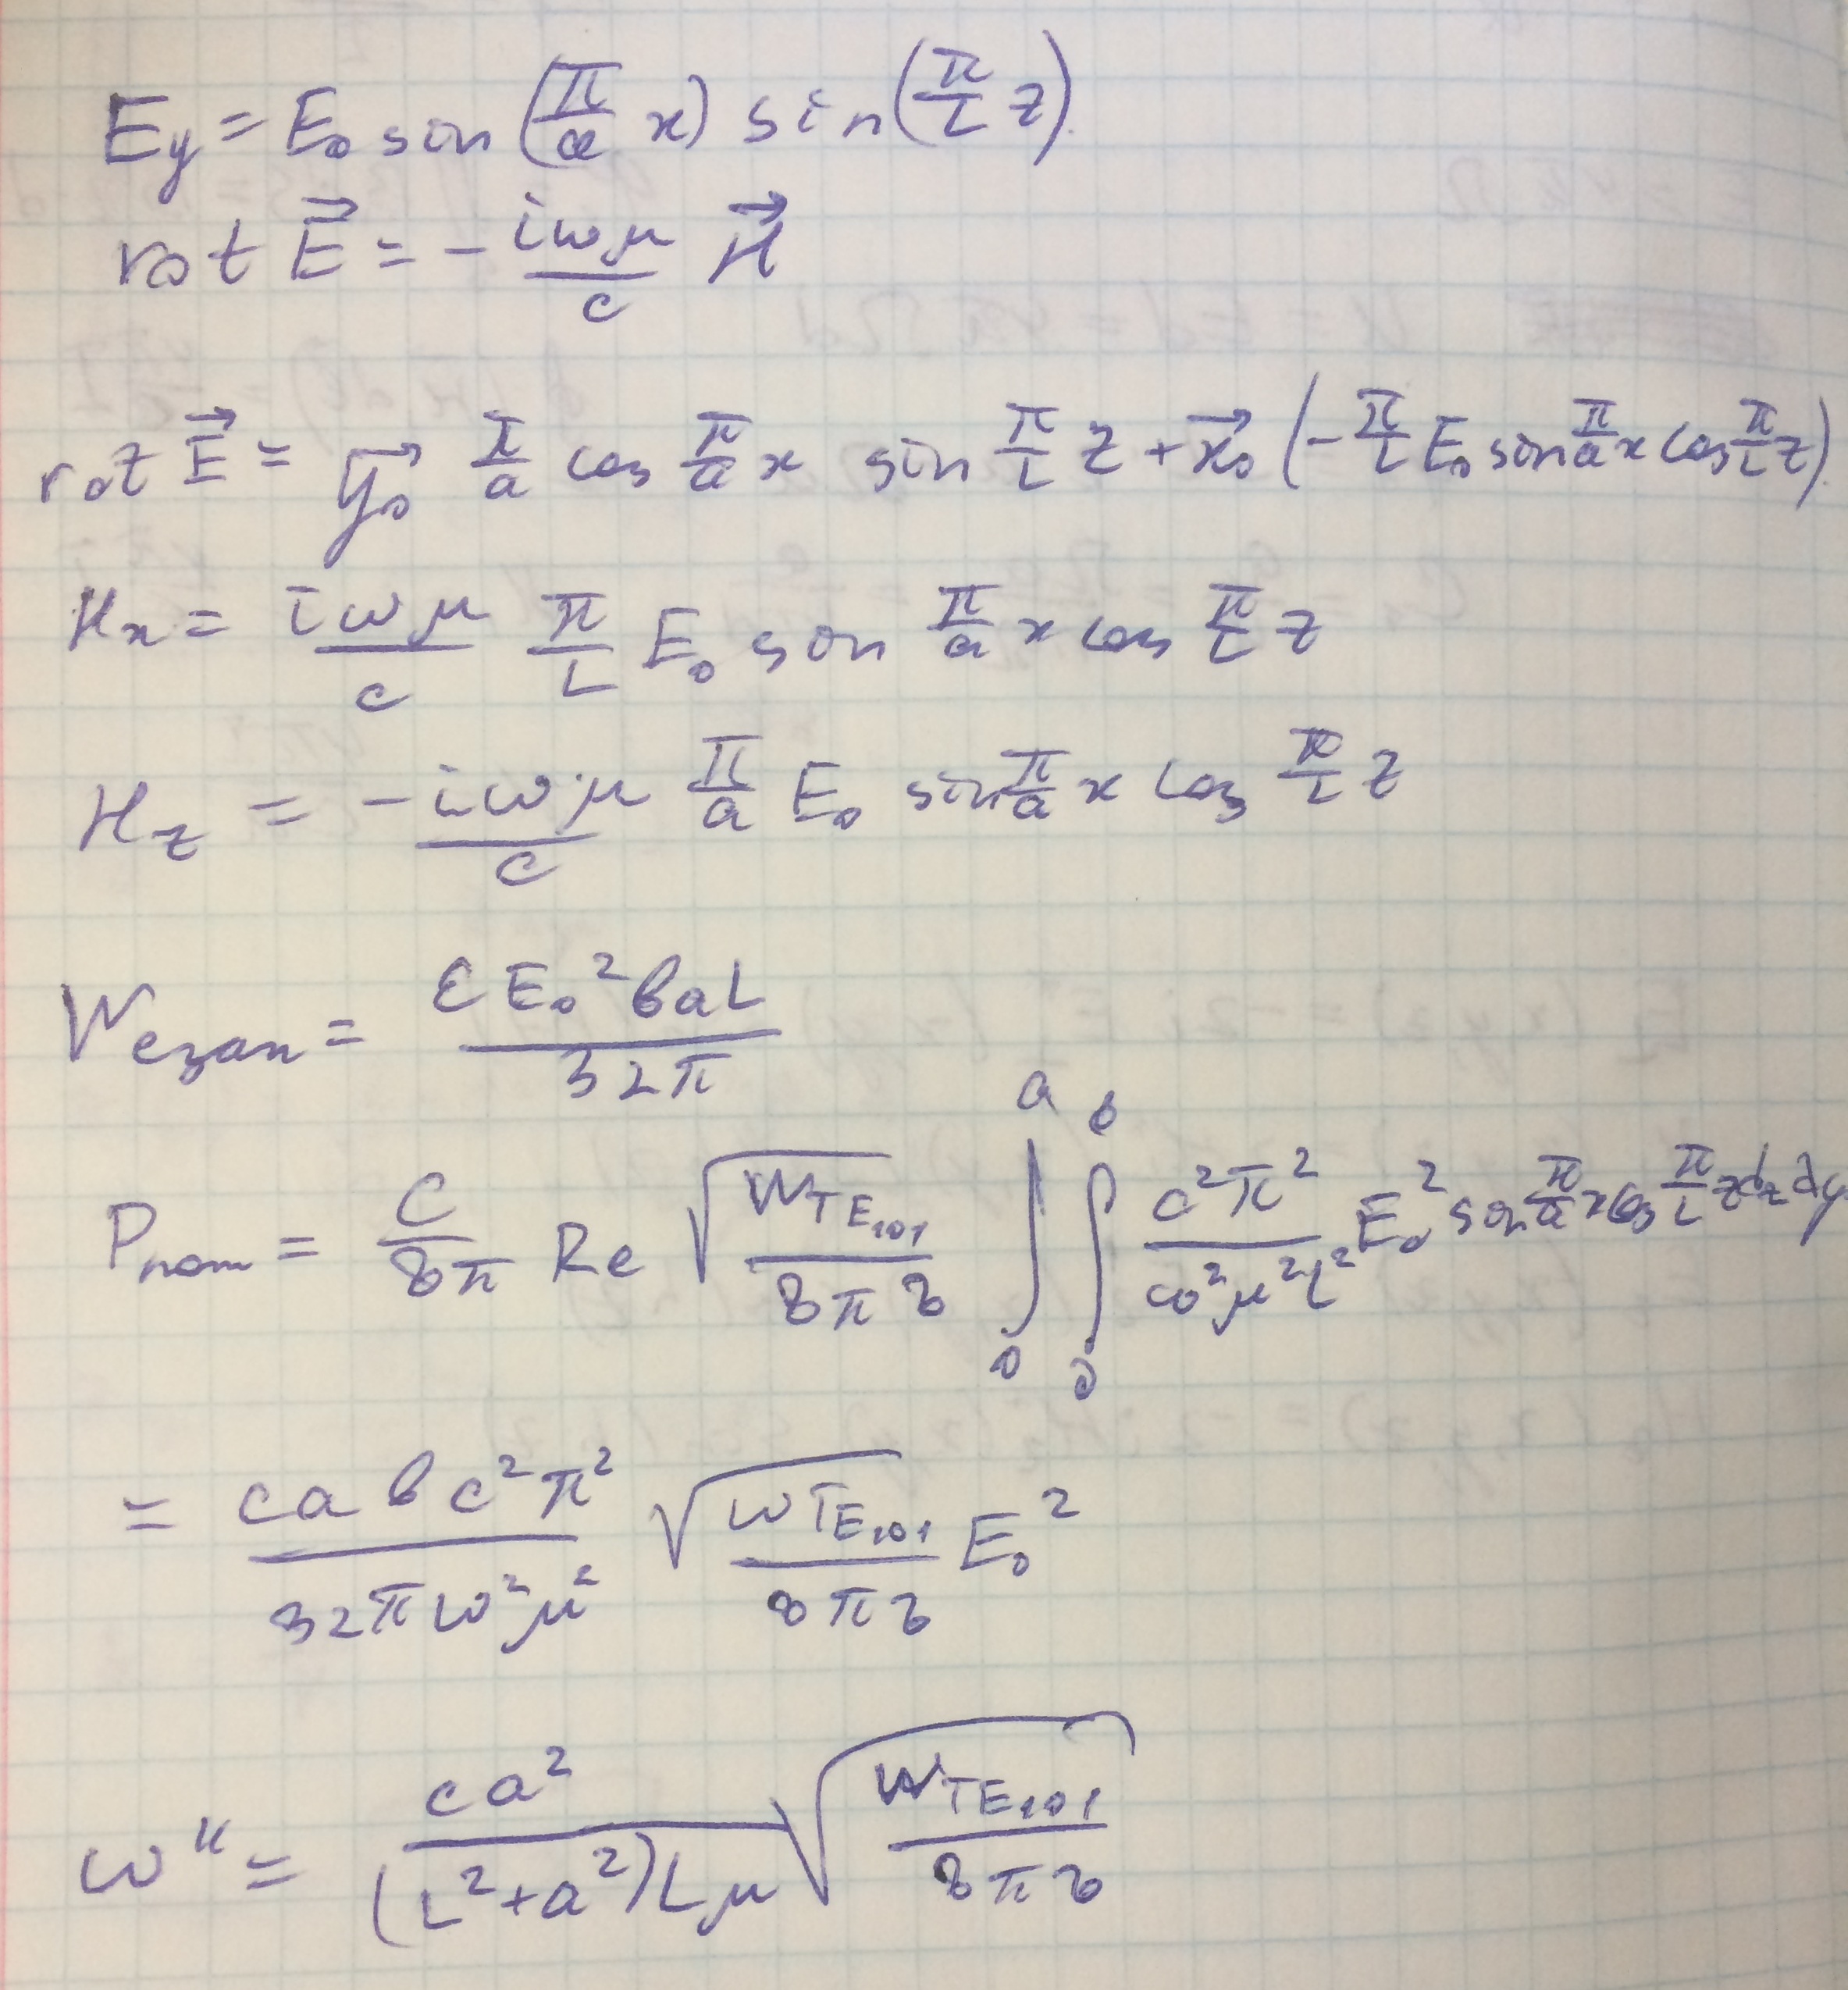 E_y = E_0 sin(π/a x) sin(π/L z).
rot E⃗ = - iωμ/c H⃗
rot E⃗ = y⃗_0 π/a cos π/a x sin π/L z + x⃗_0 (- π/L E_0 sin π/a x cos π/L z).
H_x = iωμ/c π/L E_0 sin π/a x cos π/L z
H_z = -iωμ/c π/a E_0 sin π/a x cos π/L z
W_езап = εE_0²baL/32π
P_пот = c/8π Re √(W_TE₁₀₁/8πσ) ∫_0^a ∫_0^b c²π²/ω²μ²L² E_0² sin π/a x cos π/L z dz dy
= cabc²π²/32πω²μ² √(ωTE₁₀₁/8πσ) E_0²
ω" = ca²/(L²+a²)Lμ √(W_TE₁₀₁/8πσ)